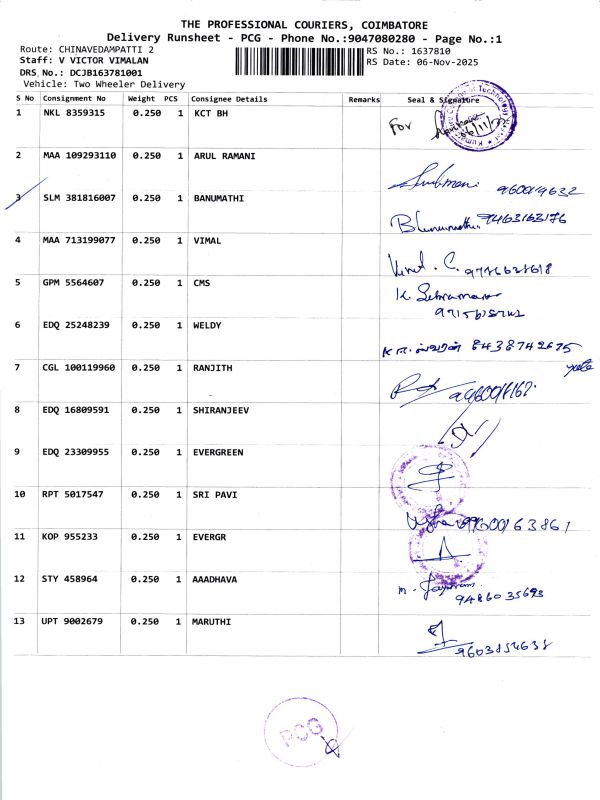 THE PROFESSIONAL COURIERS, COIMBATORE
Delivery Runsheet - PCG - Phone No.:9047080280 - Page No.:1
Route: CHINAVEDAMPATTI 2
RS No.: 1637810
Staff: V VICTOR VIMALAN
RS Date: 06-Nov-2025
DRS No.: DCJB163781001
Vehicle: Two Wheeler Delivery
S No Consignment No Weight PCS Consignee Details Remarks Seal & Signature
1 NKL 8359315 0.250 1 KCT BH
For
2 MAA 109293110 0.250 1 ARUL RAMANI
3 SLM 381816007 0.250 1 BANUMATHI
4 MAA 713199077 0.250 1 VIMAL
5 GPM 5564607 0.250 1 CMS
6 EDQ 25248239 0.250 1 WELDY
8438742675
7 CGL 100119960 0.250 1 RANJITH
8 EDQ 16809591 0.250 1 SHIRANJEEV
9 EDQ 23309955 0.250 1 EVERGREEN
10 RPT 5017547 0.250 1 SRI PAVI
11 KOP 955233 0.250 1 EVERGR
12 STY 458964 0.250 1 AAADHAVA
9486035693
13 UPT 9002679 0.250 1 MARUTHI
PCG